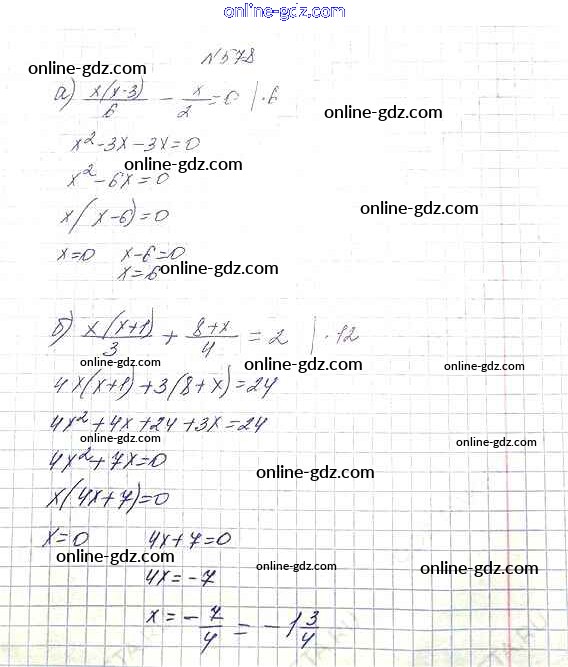 online-gdz.com
N578
online-gdz.com
а) x(x-3)/6 - x/2 = 0 |·6
online-gdz.com
x²-3x-3x=0
online-gdz.com
x²-6x=0
x(x-6)=0
online-gdz.com
x=0 x-6=0
x=6 online-gdz.com
б) x(x+1)/3 + 8+x/4 = 2 |·12
online-gdz.com online-gdz.com online-gdz.com
4x(x+1)+3(8+x)=24
4x²+4x+24+3x=24
online-gdz.com online-gdz.com
4x²+7x=0
online-gdz.com
x(4x+7)=0
x=0 4x+7=0
online-gdz.com online-gdz.com online-gdz.com
4x=-7
x = -7/4 = -1 3/4